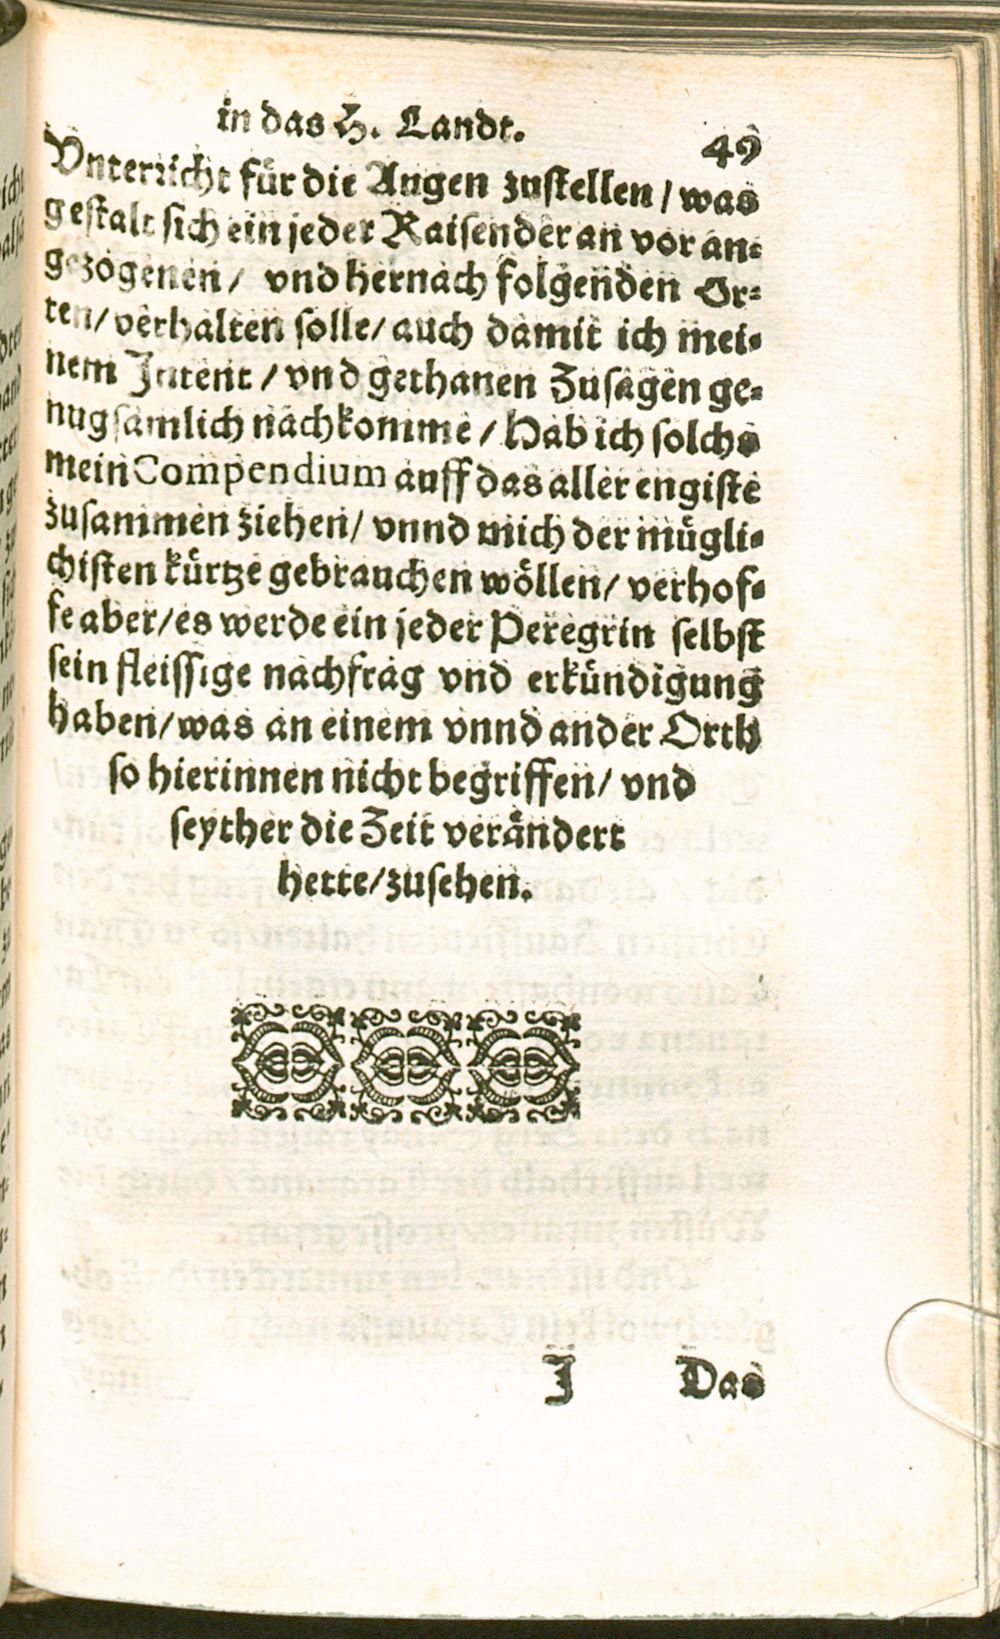 in das H. Landt.
49
Vnterricht für die Augen zustellen / was
gestalt sich ein jeder Raisender an vor an⸗
gezogenen / vnd hernach folgenden Or⸗
ten / verhalten solle / auch damit ich mei⸗
nem Intent / vnd gethanen Zusagen ge⸗
nugsamlich nachkomme / Hab ich solchs
mein Compendium auff das aller engiste
zusammen ziehen / vnnd mich der mügli⸗
chisten kürtze gebrauchen wöllen / verhof⸗
fe aber / es werde ein jeder Peregrin selbst
sein fleissige nachfrag vnd erkündigung
haben / was an einem vnnd ander Orth
so hierinnen nicht begriffen / vnd
seyther die Zeit verändert
hette / zusehen.
J Das